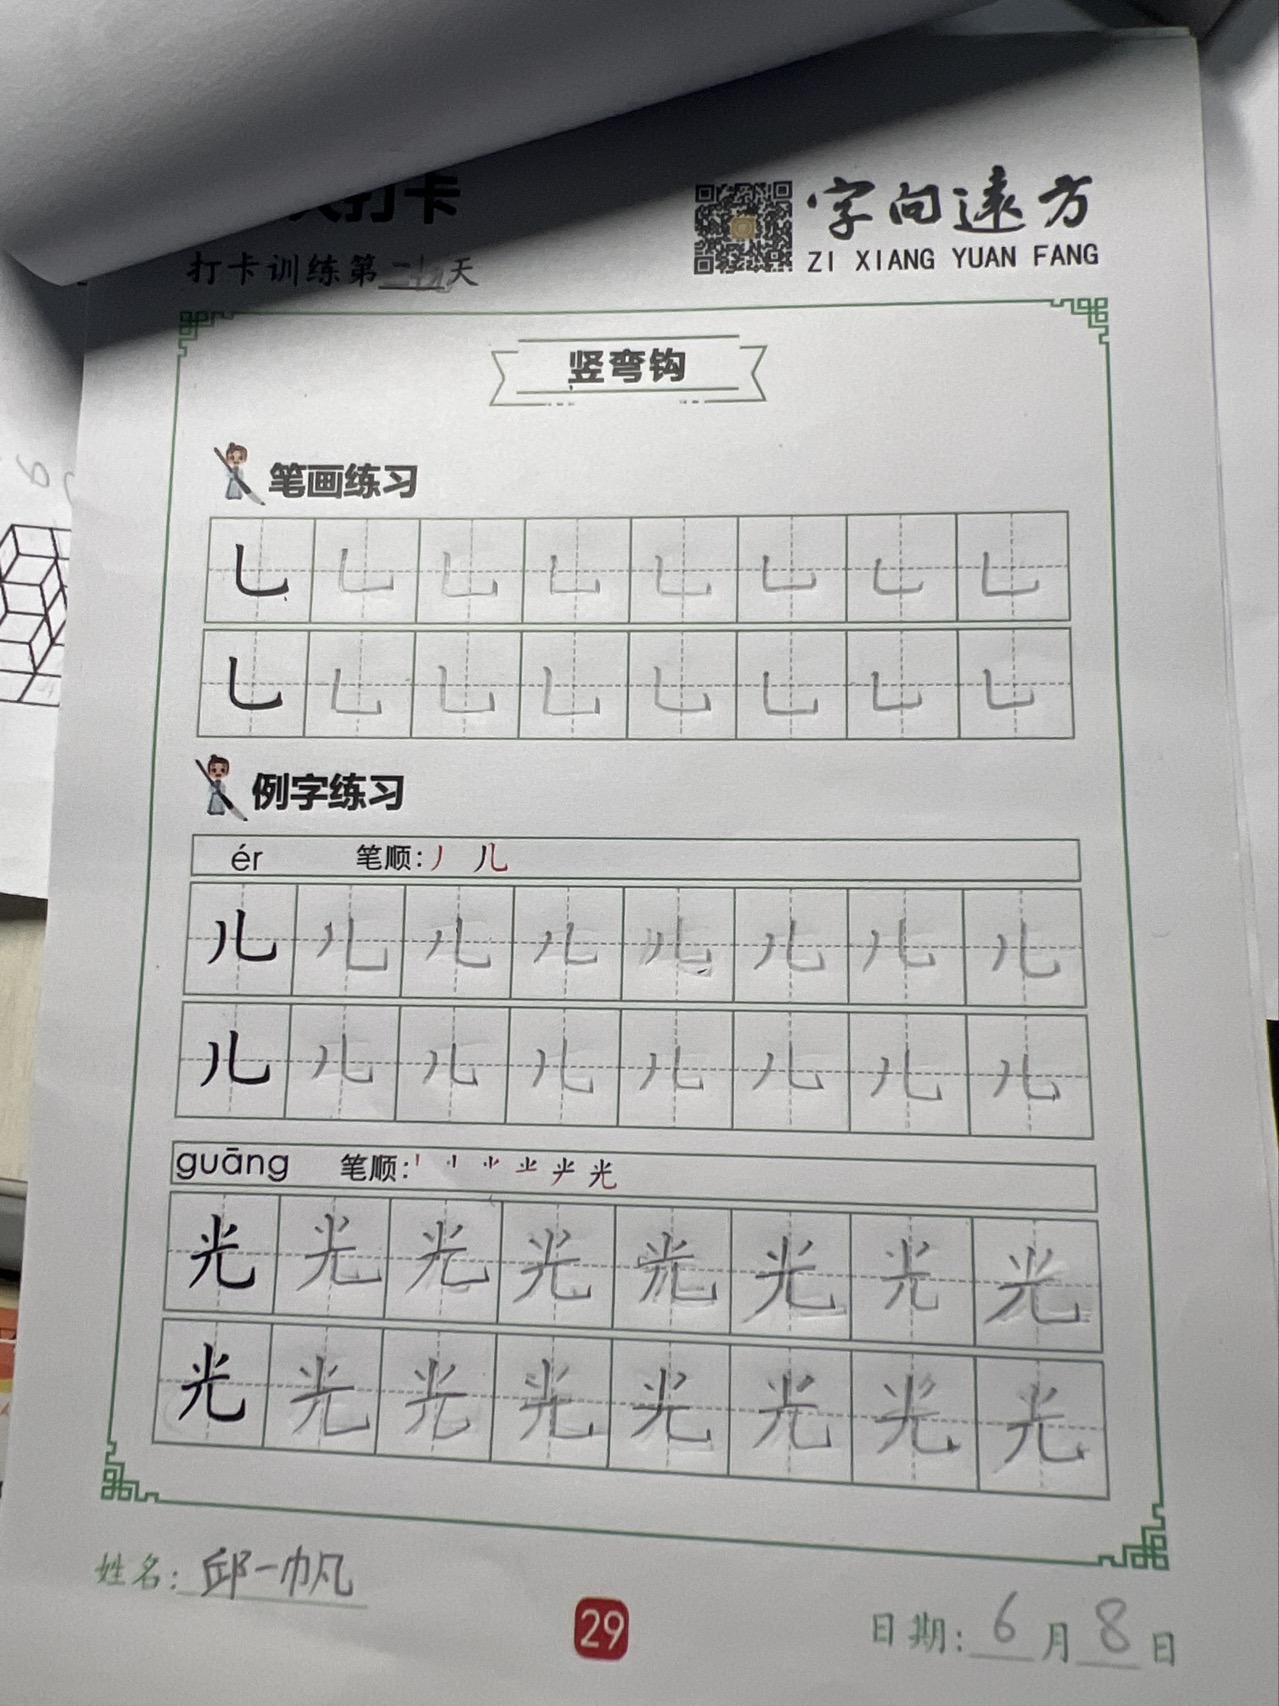 打卡
字向遠方
打卡训练第二十九天
ZI XIANG YUAN FANG
竖弯钩
笔画练习
乚 乚 乚 乚 乚 乚 乚 乚
乚 乚 乚 乚 乚 乚 乚 乚
例字练习
ér 笔顺: 丿 儿
儿 儿 儿 儿 儿 儿 儿 儿
儿 儿 儿 儿 儿 儿 儿 儿
guāng 笔顺:
光 光 光 光 光 光 光 光
光 光 光 光 光 光 光 光
姓名: 邱一帆
29
日期: 6 月 8 日